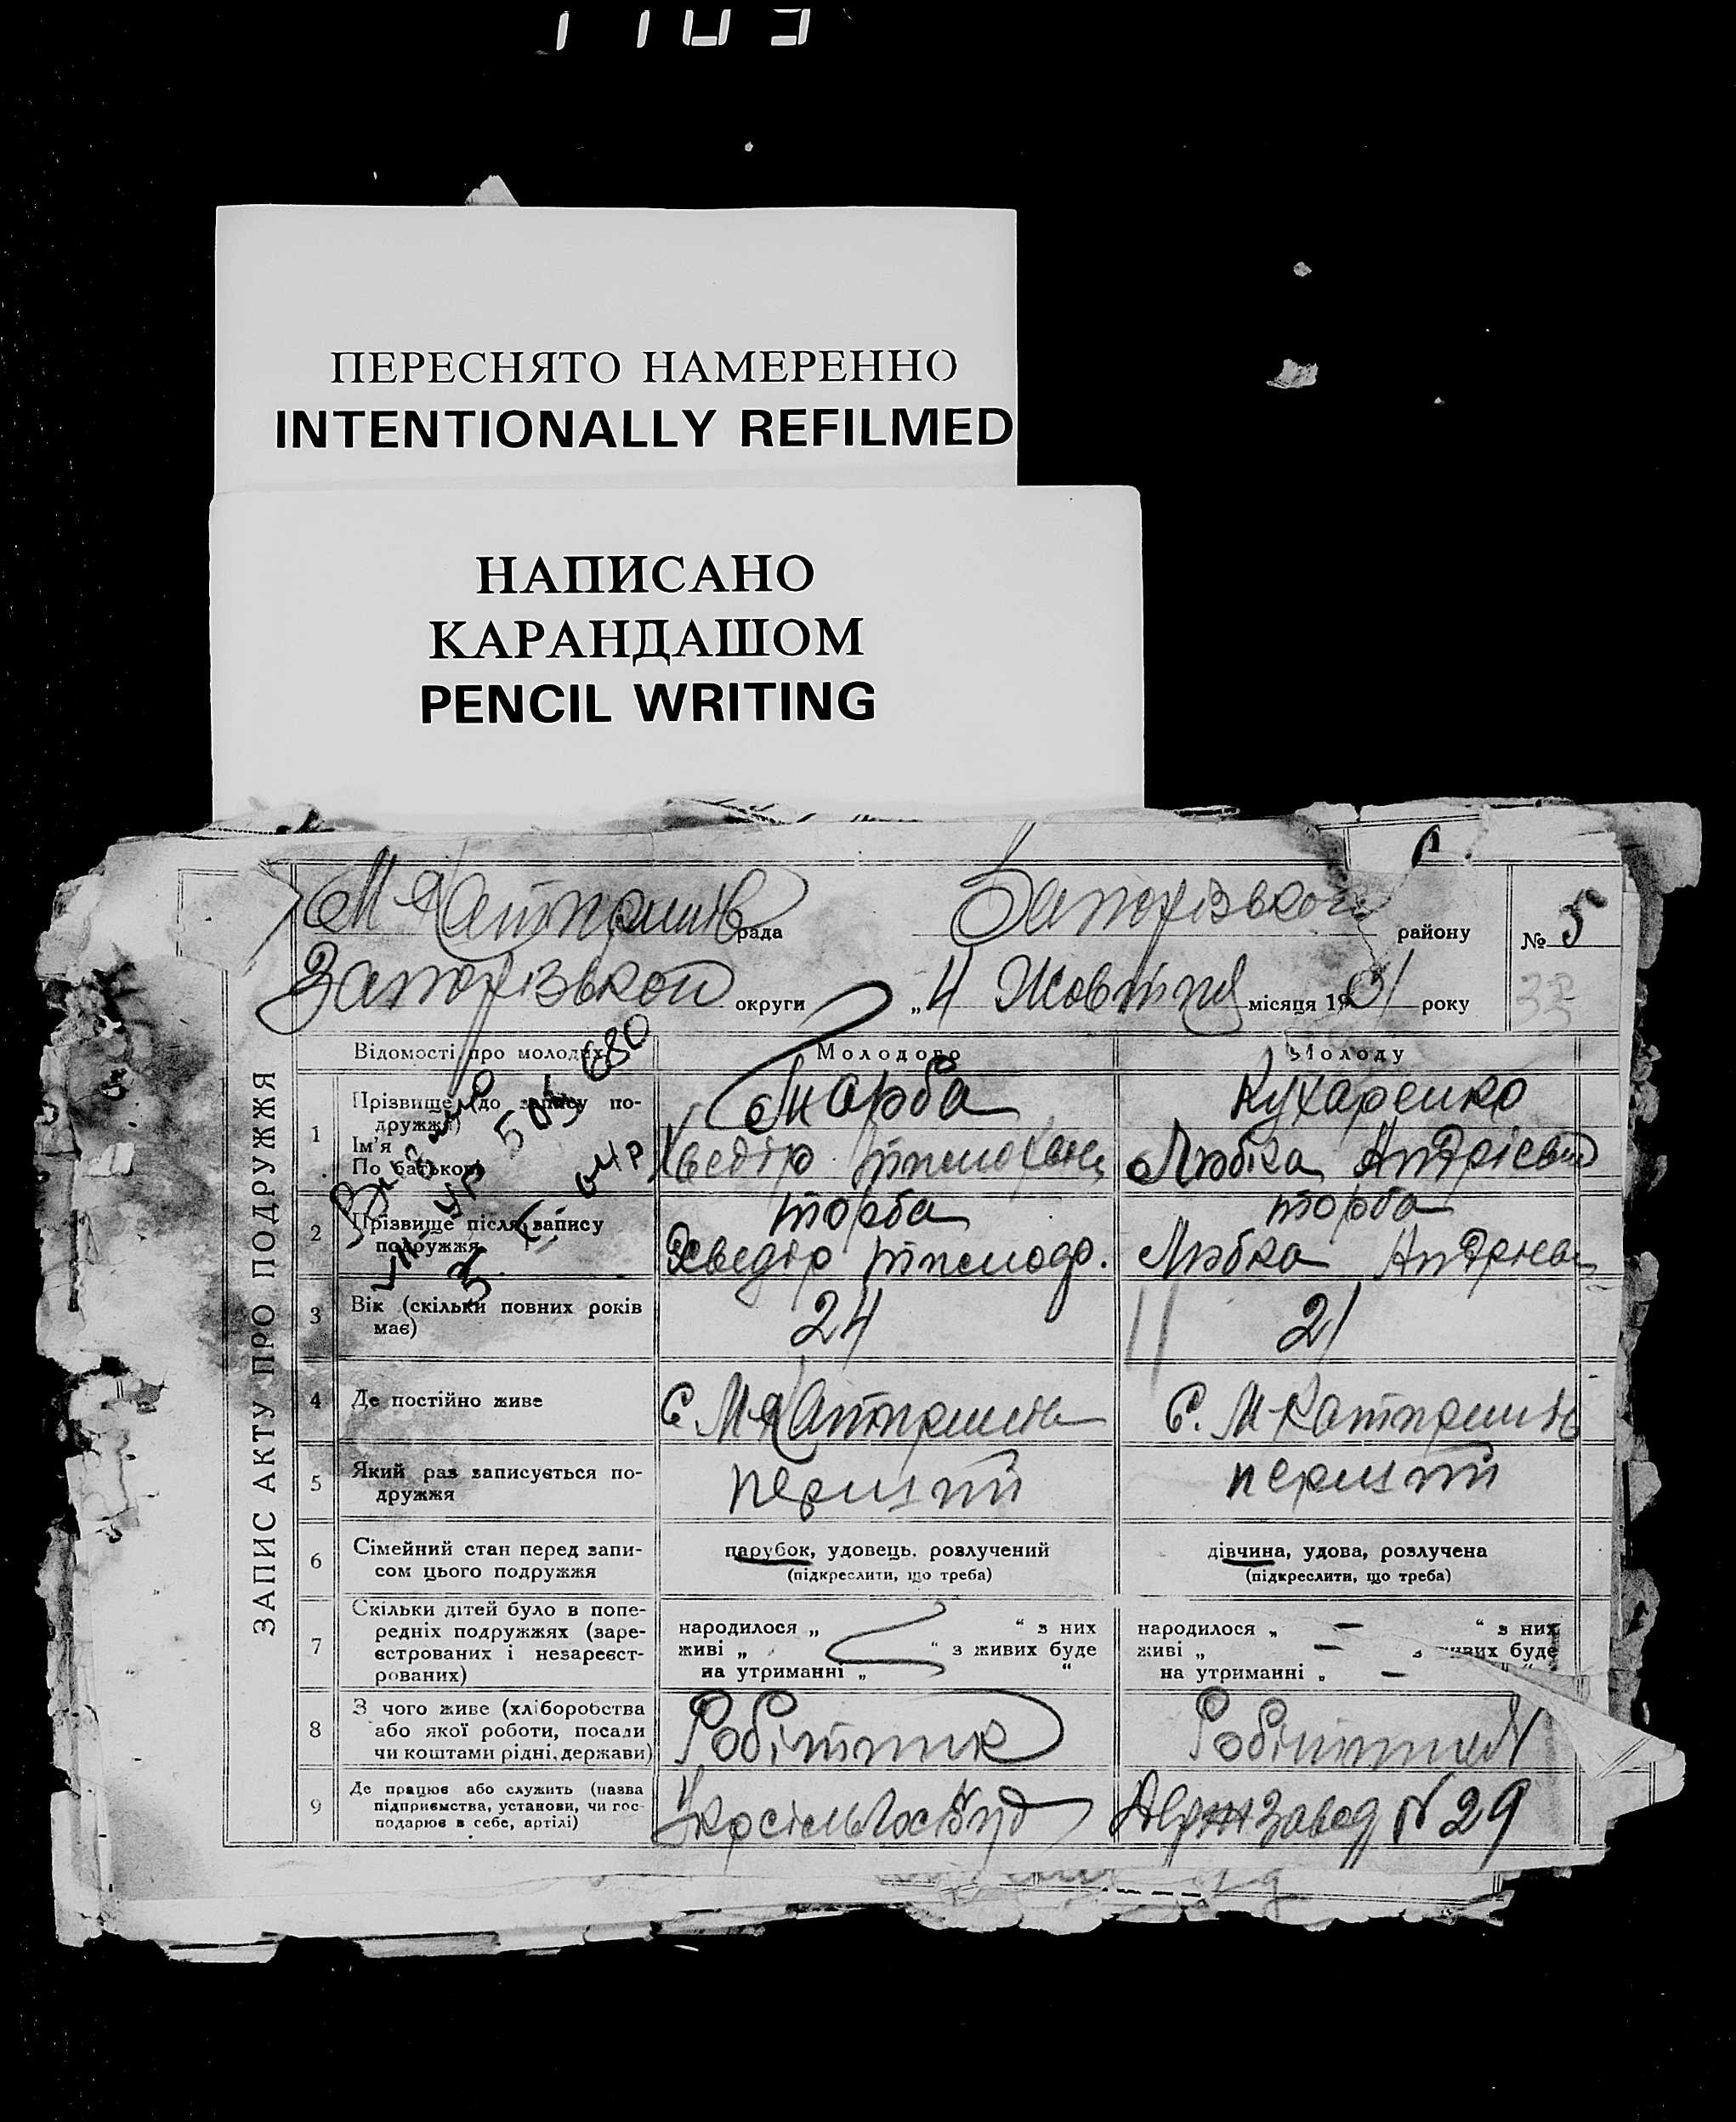 ПЕРЕСНЯТО НАМЕРЕННО
INTENTIONALLY REFILMED
НАПИСАНО
КАРАНДАШОМ
PENCIL WRITING
рада Запорізької району № 5
Запорізької округи „4 Жовтня місяця 1931 року
ЗАПИС АКТУ ПРО ПОДРУЖЖЯ
Відомості про молодих Молодого Молоду
1 Прізвище (до запису подружжя) Торба Кухаренко
Ім'я
По батькові Хведір Любка Андрієвна
2 Прізвище після запису Торба Торба
подружжя Хведір Любка
3 Вік (скільки повних років 24 21
має)
4 Де постійно живе С. С.
5 Який раз записується по- перший перший
дружжя
6 Сімейний стан перед запи- парубок, удовець, розлучений дівчина, удова, розлучена
сом цього подружжя (підкреслити, що треба) (підкреслити, що треба)
7 Скільки дітей було в попе-
редніх подружжях (заре- народилося „ “ з них народилося „ — “ з них
єстрованих і незареєст- живі „ “ з живих буде живі „ — з живих буде
рованих) на утриманні „ “ на утриманні „ —
8 З чого живе (хліборобства
або якої роботи, посади Робітник Робітниця
чи коштами рідні, держави)
9 Де працює або служить (назва
підприємства, установи, чи гос- Держ Завод № 29
подарює в себе, артілі)